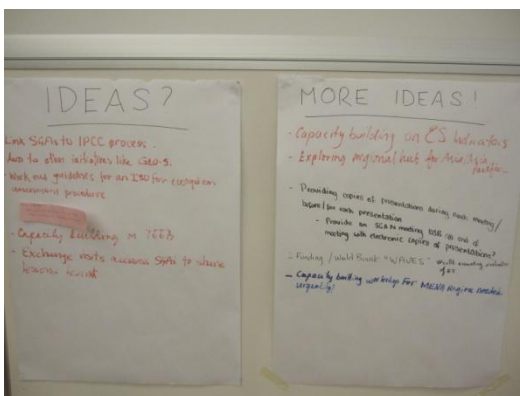 IDEAS?
Link SGAs to IPCC process.
Also to other initiatives like Geo-5.
Work out guidelines for an ISO for ecosystem
assessment procedure
- Capacity building in TEEB
- Exchange visits across SGAs to share
lessons learnt
MORE IDEAS!
- Capacity building on ES Indicators
- Exploring regional hub for Asia/Asia
Pacific
- Providing copies of presentations during each meeting/
before/for each presentation
- Provide an SGAN meeting USB at end of
meeting with electronic copies of presentations?
- Funding / World Bank "WAVES"
- Capacity building workshop for MENA Region needed
urgently!